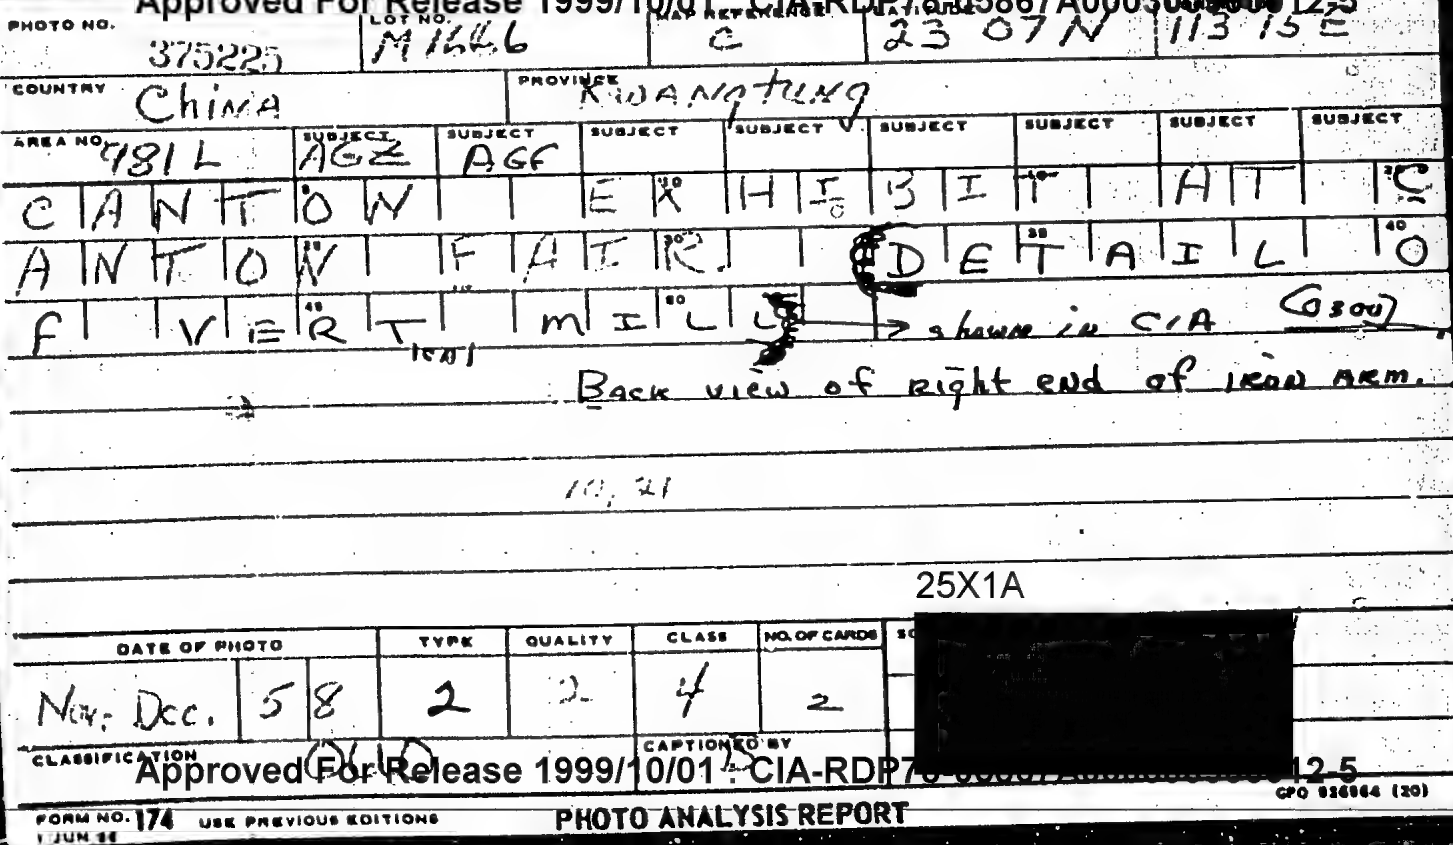 Approved For Release 1999/10/01 : CIA-RDP
PHOTO NO. LOT NO. MAP REFERENCE
375225 M1446 C 23 07 N 113 15 E
COUNTRY China PROVINCE Kwangtung
AREA NO. 981 L SUBJECT AGZ SUBJECT AGF SUBJECT SUBJECT SUBJECT SUBJECT SUBJECT SUBJECT
CANTON EXHIBIT AT C
ANTON FAIR. (DETAIL O
F VERT MILL) shown in CIA
Back view of Right end of iron ARM.
10, 21
25X1A
DATE OF PHOTO TYPE QUALITY CLASS NO. OF CARDS
Nov. Dec. 58 2 2 4 2
CLASSIFICATION CAPTIONED BY
Approved For Release 1999/10/01 : CIA-RDP
GPO 926964 (20)
FORM NO. 174 USE PREVIOUS EDITIONS PHOTO ANALYSIS REPORT
1 JUN